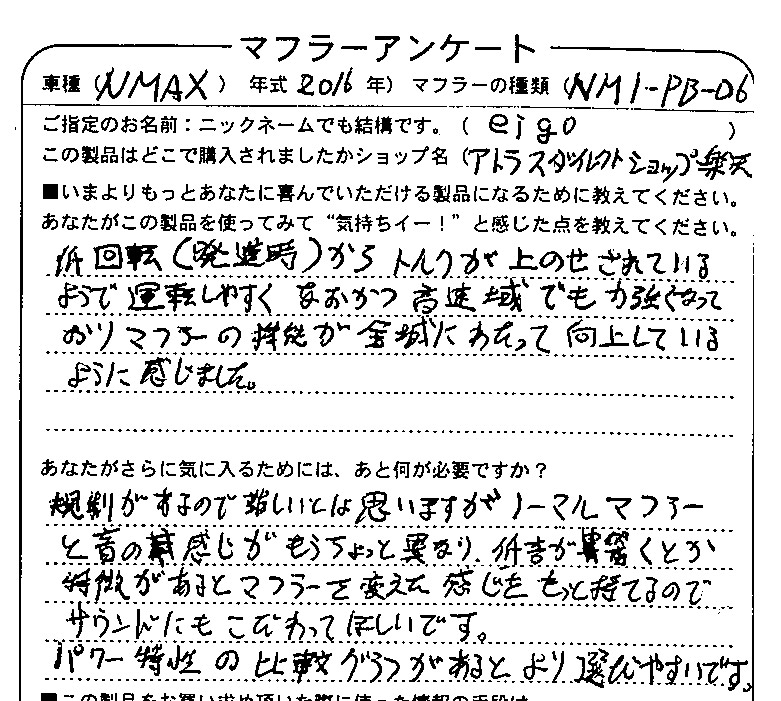 マフラーアンケート
車種（NMAX） 年式 2016 年） マフラーの種類（NM1-PB-06
ご指定のお名前：ニックネームでも結構です。（ eigo ）
この製品はどこで購入されましたかショップ名（アトラスダイレクトショップ楽天
■いまよりもっとあなたに喜んでいただける製品になるために教えてください。
あなたがこの製品を使ってみて“気持ちイー！”と感じた点を教えてください。
低回転（発進時）から トルクが 上のせされている
ようで 運転しやすく なおかつ 高速域 でも 力強くなって
おり マフラーの 性能が 全域に わたって 向上している
ように 感じました。
あなたがさらに気に入るためには、あと何が必要ですか？
規制があるので 難しいとは 思いますが ノーマルマフラー
と音の 感じが もうちょっと 異なり、低音が 響くとか
特徴が あると マフラーを 変えた 感じを もっと持てるので
サウンドにも こだわって ほしいです。
パワー特性 の 比較グラフが あると より 選びやすいです。
■この製品をお買い求め頂いた際に使った情報の手段は